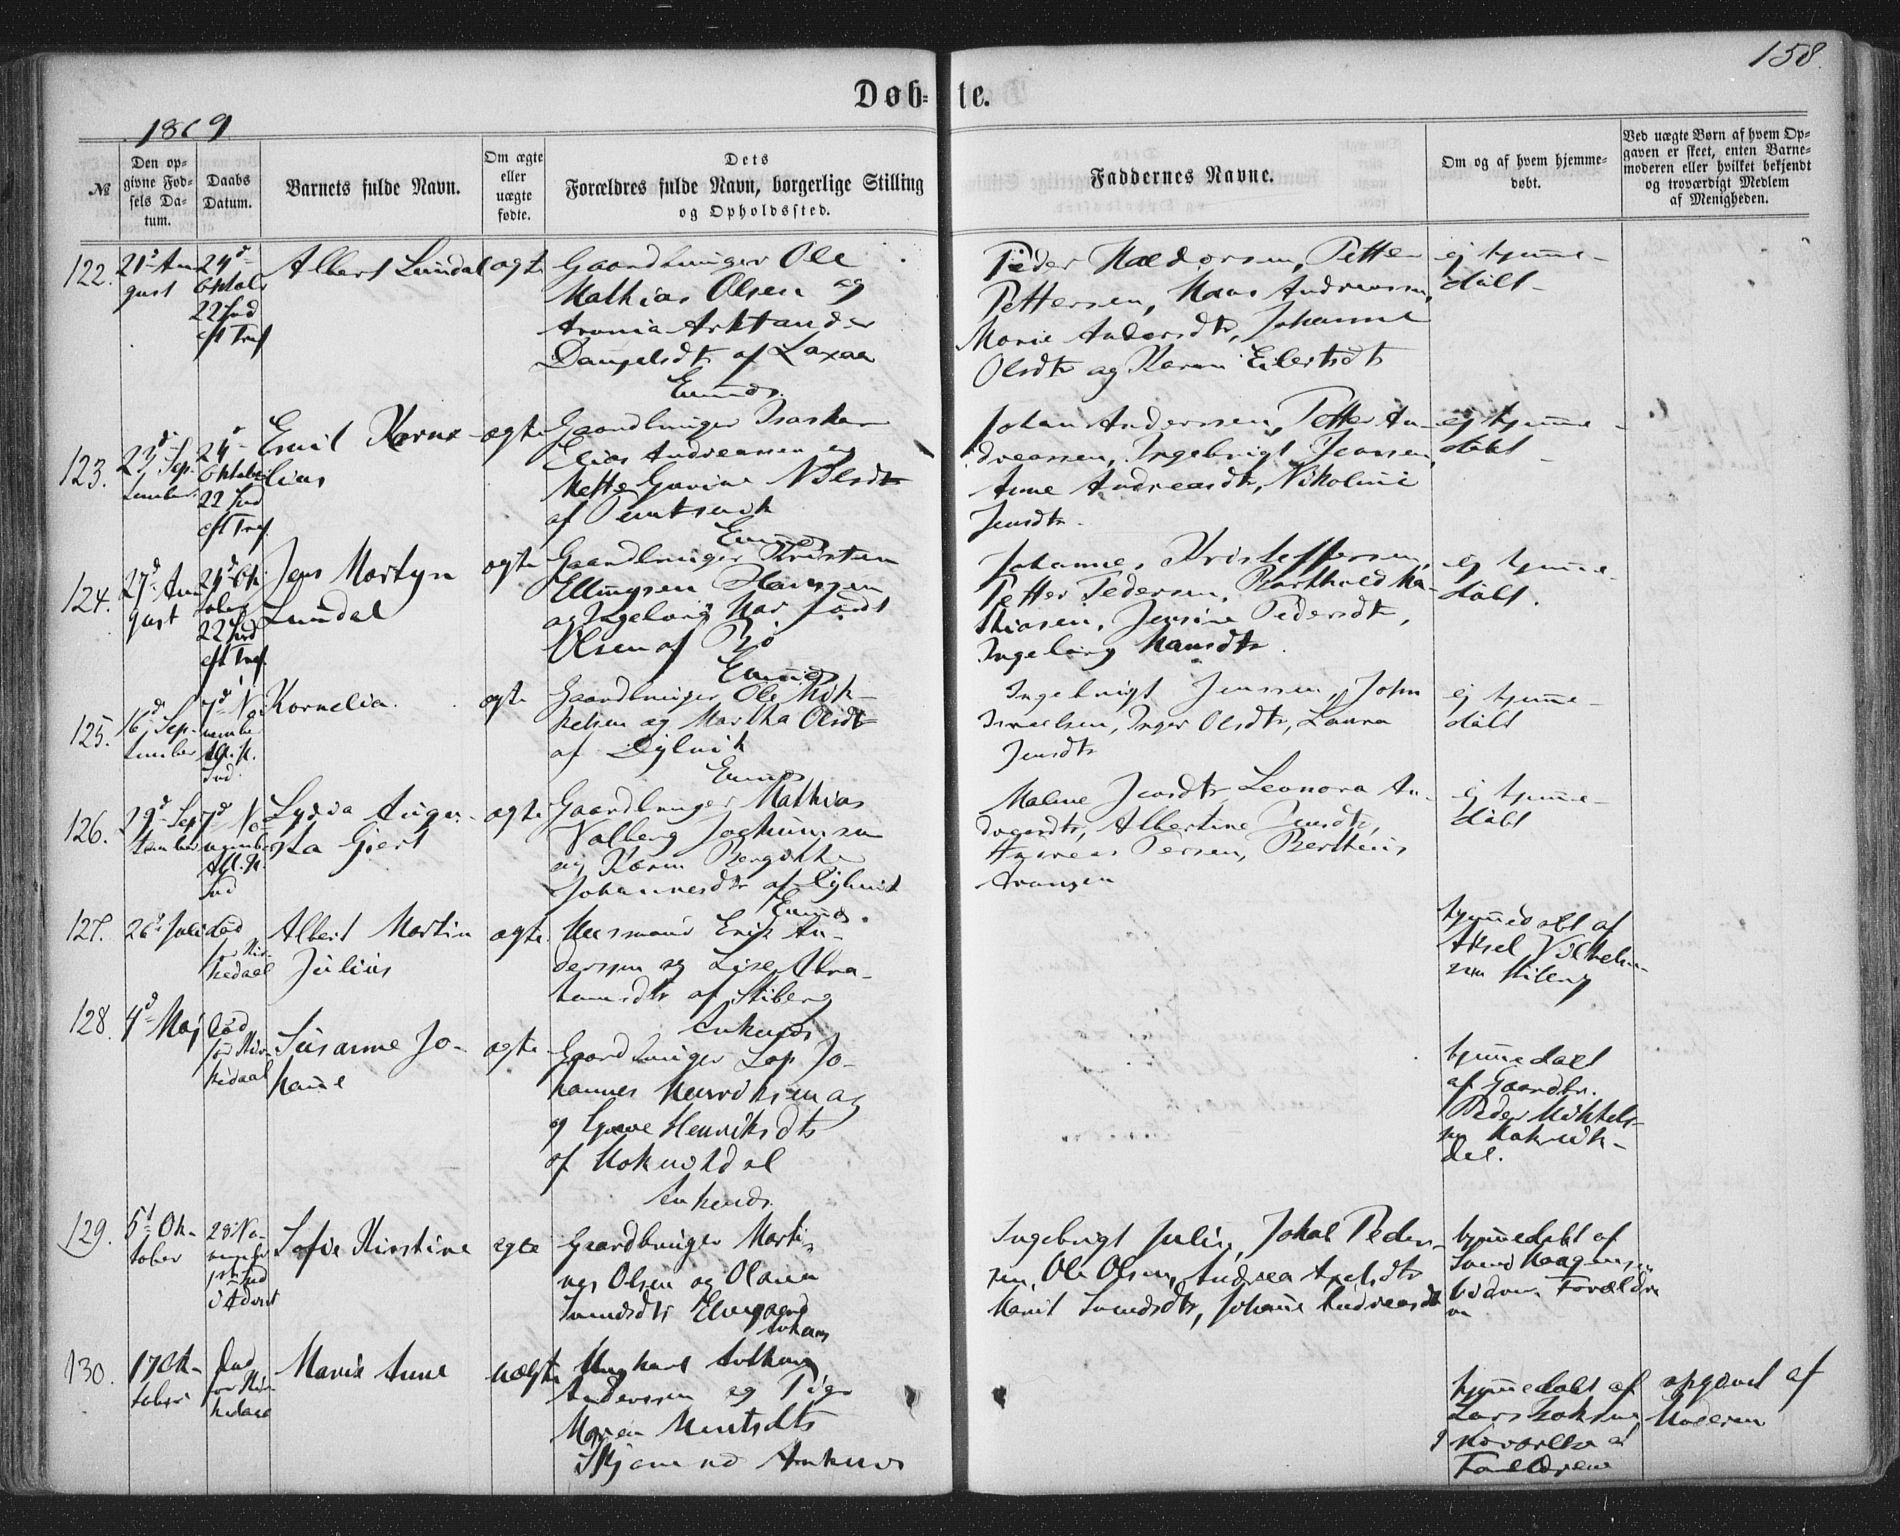 158.
Døb-te.
1869
№
Den op-
givne Fød-
sels Da-
tum.
Daabs
Datum.
Barnets fulde Navn.
Om ægte
eller
uægte
fødte.
Dets
Forældres fulde Navn, borgerlige Stilling
og Opholdssted.
Faddernes Navne.
Om og af hvem hjemme-
døbt.
Ved uægte Børn af hvem Op-
gaven er skeet, enten Barne-
moderen eller hvilket bekjendt
og troværdigt Medlem
af Menigheden.
122. 21d Au-
gust
24d
Oktober
22 Snd
eft Tref
Albert Lundal
ægte
Gaardbruger Ole
Mathias Olsen og
Aronia Arktander
af Laxaa
Evends.
Peder Haldorsen, Petter
Pettersen, Hans Andreassen,
Marie Andersdtr, Johanna
Olsdtr og Karen Eilertsdtr
ej hjemme-
døbt
123. 23d Sep-
tember
24d
Oktober
22 Snd
eft Tref
Emil Korne-
lius
ægte
Gaardbruger Isaskar
Elias Andreassen og
Mette Gurine Nilsdtr
af
Evends
Johan Anderssen, Petter An-
dreassen, Ingebrigt Jenssen,
Anne Andreasdtr, Nikoline
Jensdtr.
ej hjemme-
døbt
124. 27d Au-
gust
24d Ok-
tober
22 Snd
eft Tref
Jens Martyn
Lundal
ægte
Gaardbruger Kristian
Ellingsen
og Ingeborg Mar. født
Olsen af Bø
Evends
Johannes Kristoffersen,
Petter Pedersen, Barthold Ma-
thiasen, Jensine Pedersdtr,
Ingeborg Hansdtr.
ej hjemme-
døbt.
125. 16d Sep-
tember
7d No-
vembe
All. H.
Snd.
Kornelia.
ægte
Gaardbruger Ole Mik-
kelsen og Martha Olsdtr
af Liljevik
Evends
Ingebrigt Jenssen, John
Israelsen, Inger Olsdtr, Laura
Jensdtr
ej hjemme-
døbt
126. 29d Sep-
tember
7d No-
vember
All. H.
Snd
Lydia Augu-
sta Gjert
ægte
Gaardbruger Mathias
Volberg Jochumsen
og Karen Bergitte
Johannesdtr af Liljevik
Evends.
Malene Jensdtr Leonora An-
dreasdtr, Albertine Jensdtr,
Andreas Persen, Bertheus
Aronsen
ej hjemme-
døbt
127. 26d Juli
død
før Kir-
kedaab
Albert Martin
Julius
ægte.
Husmand Erik An-
derssen og Lise Abra-
hamsdtr af Stiberg
Ankends
hjemmedøbt af
Aksel Vilhelm-
sen Stiberg
128. 4d Maj
død
før Kir-
kedaab
Susanne Jo-
hanne
ægte
Gaardbruger Lap Jo-
hannes Henriksen og
og Grete Henriksdtr
af Kokvikdal
Ankends.
hjemmedøbt
af Gaardbr.
Peder Mikkels-
sen Kokvik-
dal.
129. 5d Ok-
tober
28 No-
vember
1ste Snd
i Advent
Sofie Kirstine
ægte
Gaardbruger Marti-
nus Olsen og Olava
Svendsdtr Elvegaard
Ankens
Ingebrigt Julin, Johal Peder-
sen, Ole Olsen, Andrea Axelsdtr
Marit Svendsdtr, Johanne Andreasdtr
hjemmedøbt af
Svend Haagensen
130. 17 Ok-
tober
død
før Kir-
kedaab
Marie Anne
uægte
Ungkarl Anthon
Anderssen og Pige
Maren Mentsdtr
Skjomnes Ankenes
hjemmedøbt af
Lars Isaksen
Forældrene
opgivet af
Moderen